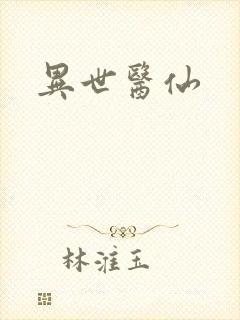 異世醫仙
林淮玉